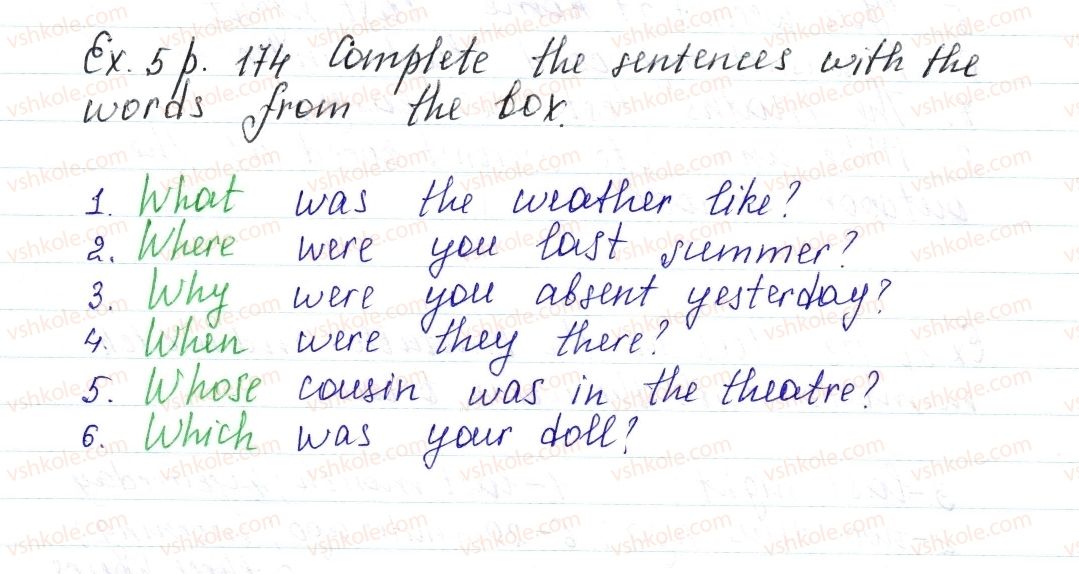 Ex. 5 p. 174 Complete the sentences with the
words from the box.
1. What was the weather like?
2. Where were you last summer?
3. Why were you absent yesterday?
4. When were they there?
5. Whose cousin was in the theatre?
6. Which was your doll?
vshkole.com